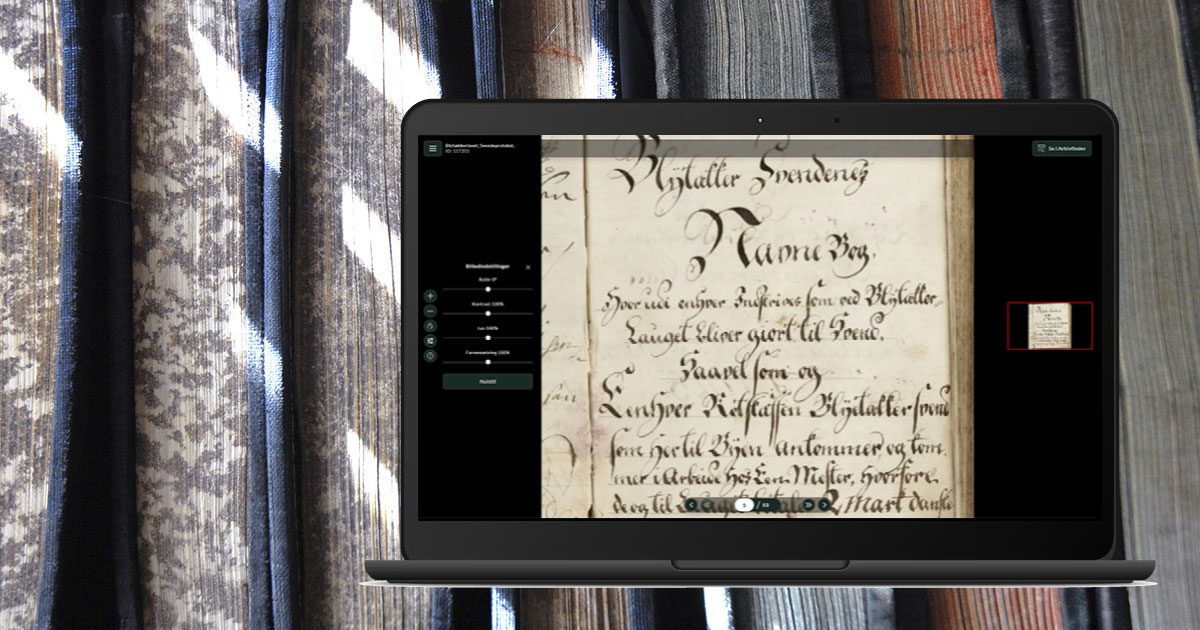 Blytækkerlavet, Svendeprotokol,
Se i Arkivfinder
Billedindstillinger
Rotér 0°
Kontrast 100%
Lys 100%
Farvemætning 100%
Nulstil
Blÿtækker Svendenes
Navne Bog.
Hvor udi enhver Indskrives som ved Blÿtækker,
Lauget bliver giort til Svend,
Saavel som og
Eenhver Retskaffen Blÿetækker svend
som her til Bÿen ankommer, og kom,
mer i Arbeide hos Een Mester, hvorfore
de og til Lauget betaler 2 Mark danske